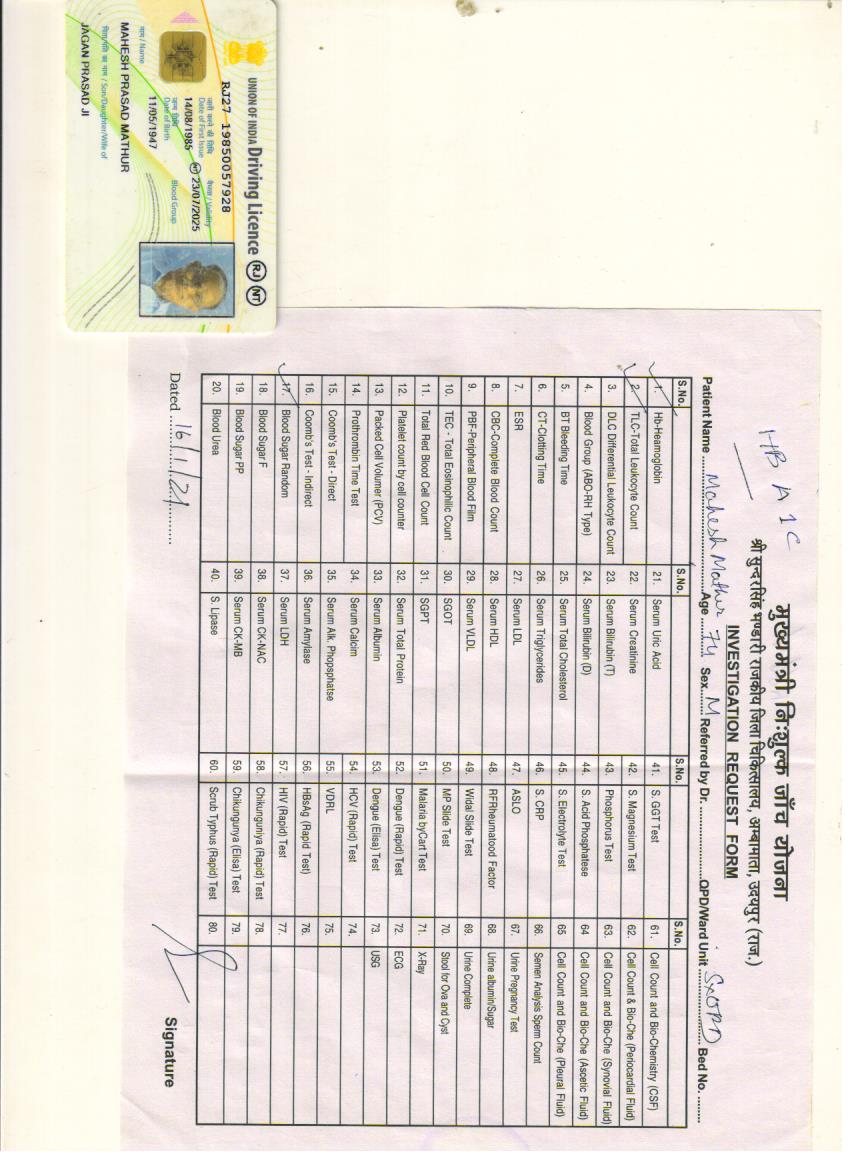 UNION OF INDIA Driving Licence RJ NT
RJ27 19850057928
जारी करने की तिथि
Date of First Issue
वैधता / Validity
14/08/1985 NT 23/07/2025
जन्म तिथि
Date of Birth
Blood Group
11/05/1947
नाम / Name
MAHESH PRASAD MATHUR
/ Son/Daughter/Wife of
JAGAN PRASAD JI
HB A1C
मुख्यमंत्री निःशुल्क जाँच योजना
श्री सुन्दरसिंह भण्डारी राजकीय जिला चिकित्सालय, अम्बामाता, उदयपुर (राज.)
INVESTIGATION REQUEST FORM
Patient Name Mahesh Mathur Age 74 Sex M Referred by Dr. OPD/Ward Unit SxOPD Bed No.
S.No. S.No. S.No. S.No.
1. Hb-Heamoglobin 21. Serum Uric Acid 41. S. GGT Test 61. Cell Count and Bio-Chemistry (CSF)
2. TLC-Total Leukocyte Count 22. Serum Creatinine 42. S. Magnesium Test 62. Cell Count & Bio-Che (Periocardial Fluid)
3. DLC Differential Leukocyte Count 23. Serum Bilirubin (T) 43. Phosphorus Test 63. Cell Count and Bio-Che (Synovial Fluid)
4. Blood Group (ABO-RH Type) 24. Serum Bilirubin (D) 44. S. Acid Phosphatese 64 Cell Count and Bio-Che (Ascetic Fluid)
5. BT Bleeding Time 25. Serum Total Cholesterol 45. S. Electrolyte Test 65 Cell Count and Bio-Che (Pleural Fluid)
6. CT-Clotting Time 26. Serum Triglycerides 46. S. CRP 66. Semen Analysis Sperm Count
7. ESR 27. Serum LDL 47. ASLO 67. Urine Pregnancy Test
8. CBC-Complete Blood Count 28. Serum HDL 48. RFRheumatood Factor 68. Urine albumin/Sugar
9. PBF-Peripheral Blood Film 29. Serum VLDL 49. Widal Slide Test 69. Urine Complete
10. TEC - Total Eosinophilic Count 30. SGOT 50. MP Slide Test 70. Stool for Ova and Cyst
11. Total Red Blood Cell Count 31. SGPT 51. Malaria byCart Test 71. X-Ray
12. Platelet count by cell counter 32. Serum Total Protein 52. Dengue (Rapid) Test 72. ECG
13. Packed Cell Volumer (PCV) 33. Serum Albumin 53. Dengue (Elisa) Test 73. USG
14. Prothrombin Time Test 34. Serum Calcim 54. HCV (Rapid) Test 74.
15. Coomb's Test - Direct 35. Serum Alk. Phopsphatse 55. VDRL 75.
16. Coomb's Test - Indirect 36. Serum Amylase 56. HBsAg (Rapid Test) 76.
17. Blood Sugar Random 37. Serum LDH 57. HIV (Rapid) Test 77.
18. Blood Sugar F 38. Serum CK-NAC 58. Chikunguniya (Rapid) Test 78.
19. Blood Sugar PP 39. Serum CK-MB 59. Chikungunya (Elisa) Test 79.
20. Blood Urea 40. S. Lipase 60. Scrub Typhus (Rapid) Test 80.
Dated 16/1/21 Signature